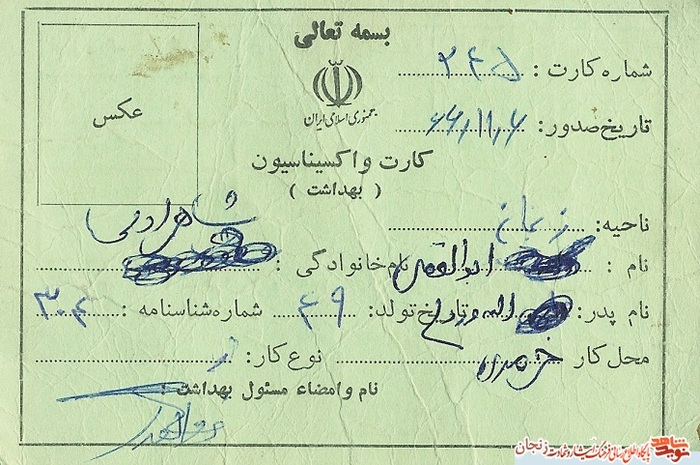 بسمه تعالی
شماره کارت : ۲۴۵
جمهوری اسلامی ایران
عکس
تاریخ صدور: ۶۶,۱۱,۶
کارت واکسیناسیون
( بهداشت )
ناحیه: زنجان
نام : ابوالفضل نام خانوادگی :
نام پدر: تاریخ تولد: ۴۹ شماره شناسنامه : ۳۰۴
محل کار نوع کار:
نام و امضاء مسئول بهداشت :
نوید شاهد پایگاه اطلاع رسانی فرهنگ ایثار و شهادت زنجان